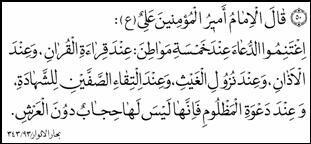 ٥٠ قَالَ الْإِمَامُ أَمِيرُ الْمُؤْمِنِينَ عَلِيٌّ (ع):
اِغْتَنِمُوا الدُّعَاءَ عِنْدَ خَمْسَةِ مَوَاطِنَ: عِنْدَ قِرَاءَةِ الْقُرْآنِ، وَعِنْدَ
الْأَذَانِ، وَعِنْدَ نُزُولِ الْغَيْثِ، وَعِنْدَ الْتِقَاءِ الصَّفَّيْنِ لِلشَّهَادَةِ،
وَعِنْدَ دَعْوَةِ الْمَظْلُومِ فَإِنَّهَا لَيْسَ لَهَا حِجَابٌ دُونَ الْعَرْشِ.
بحار الانوار ٣٤٣/٩٣